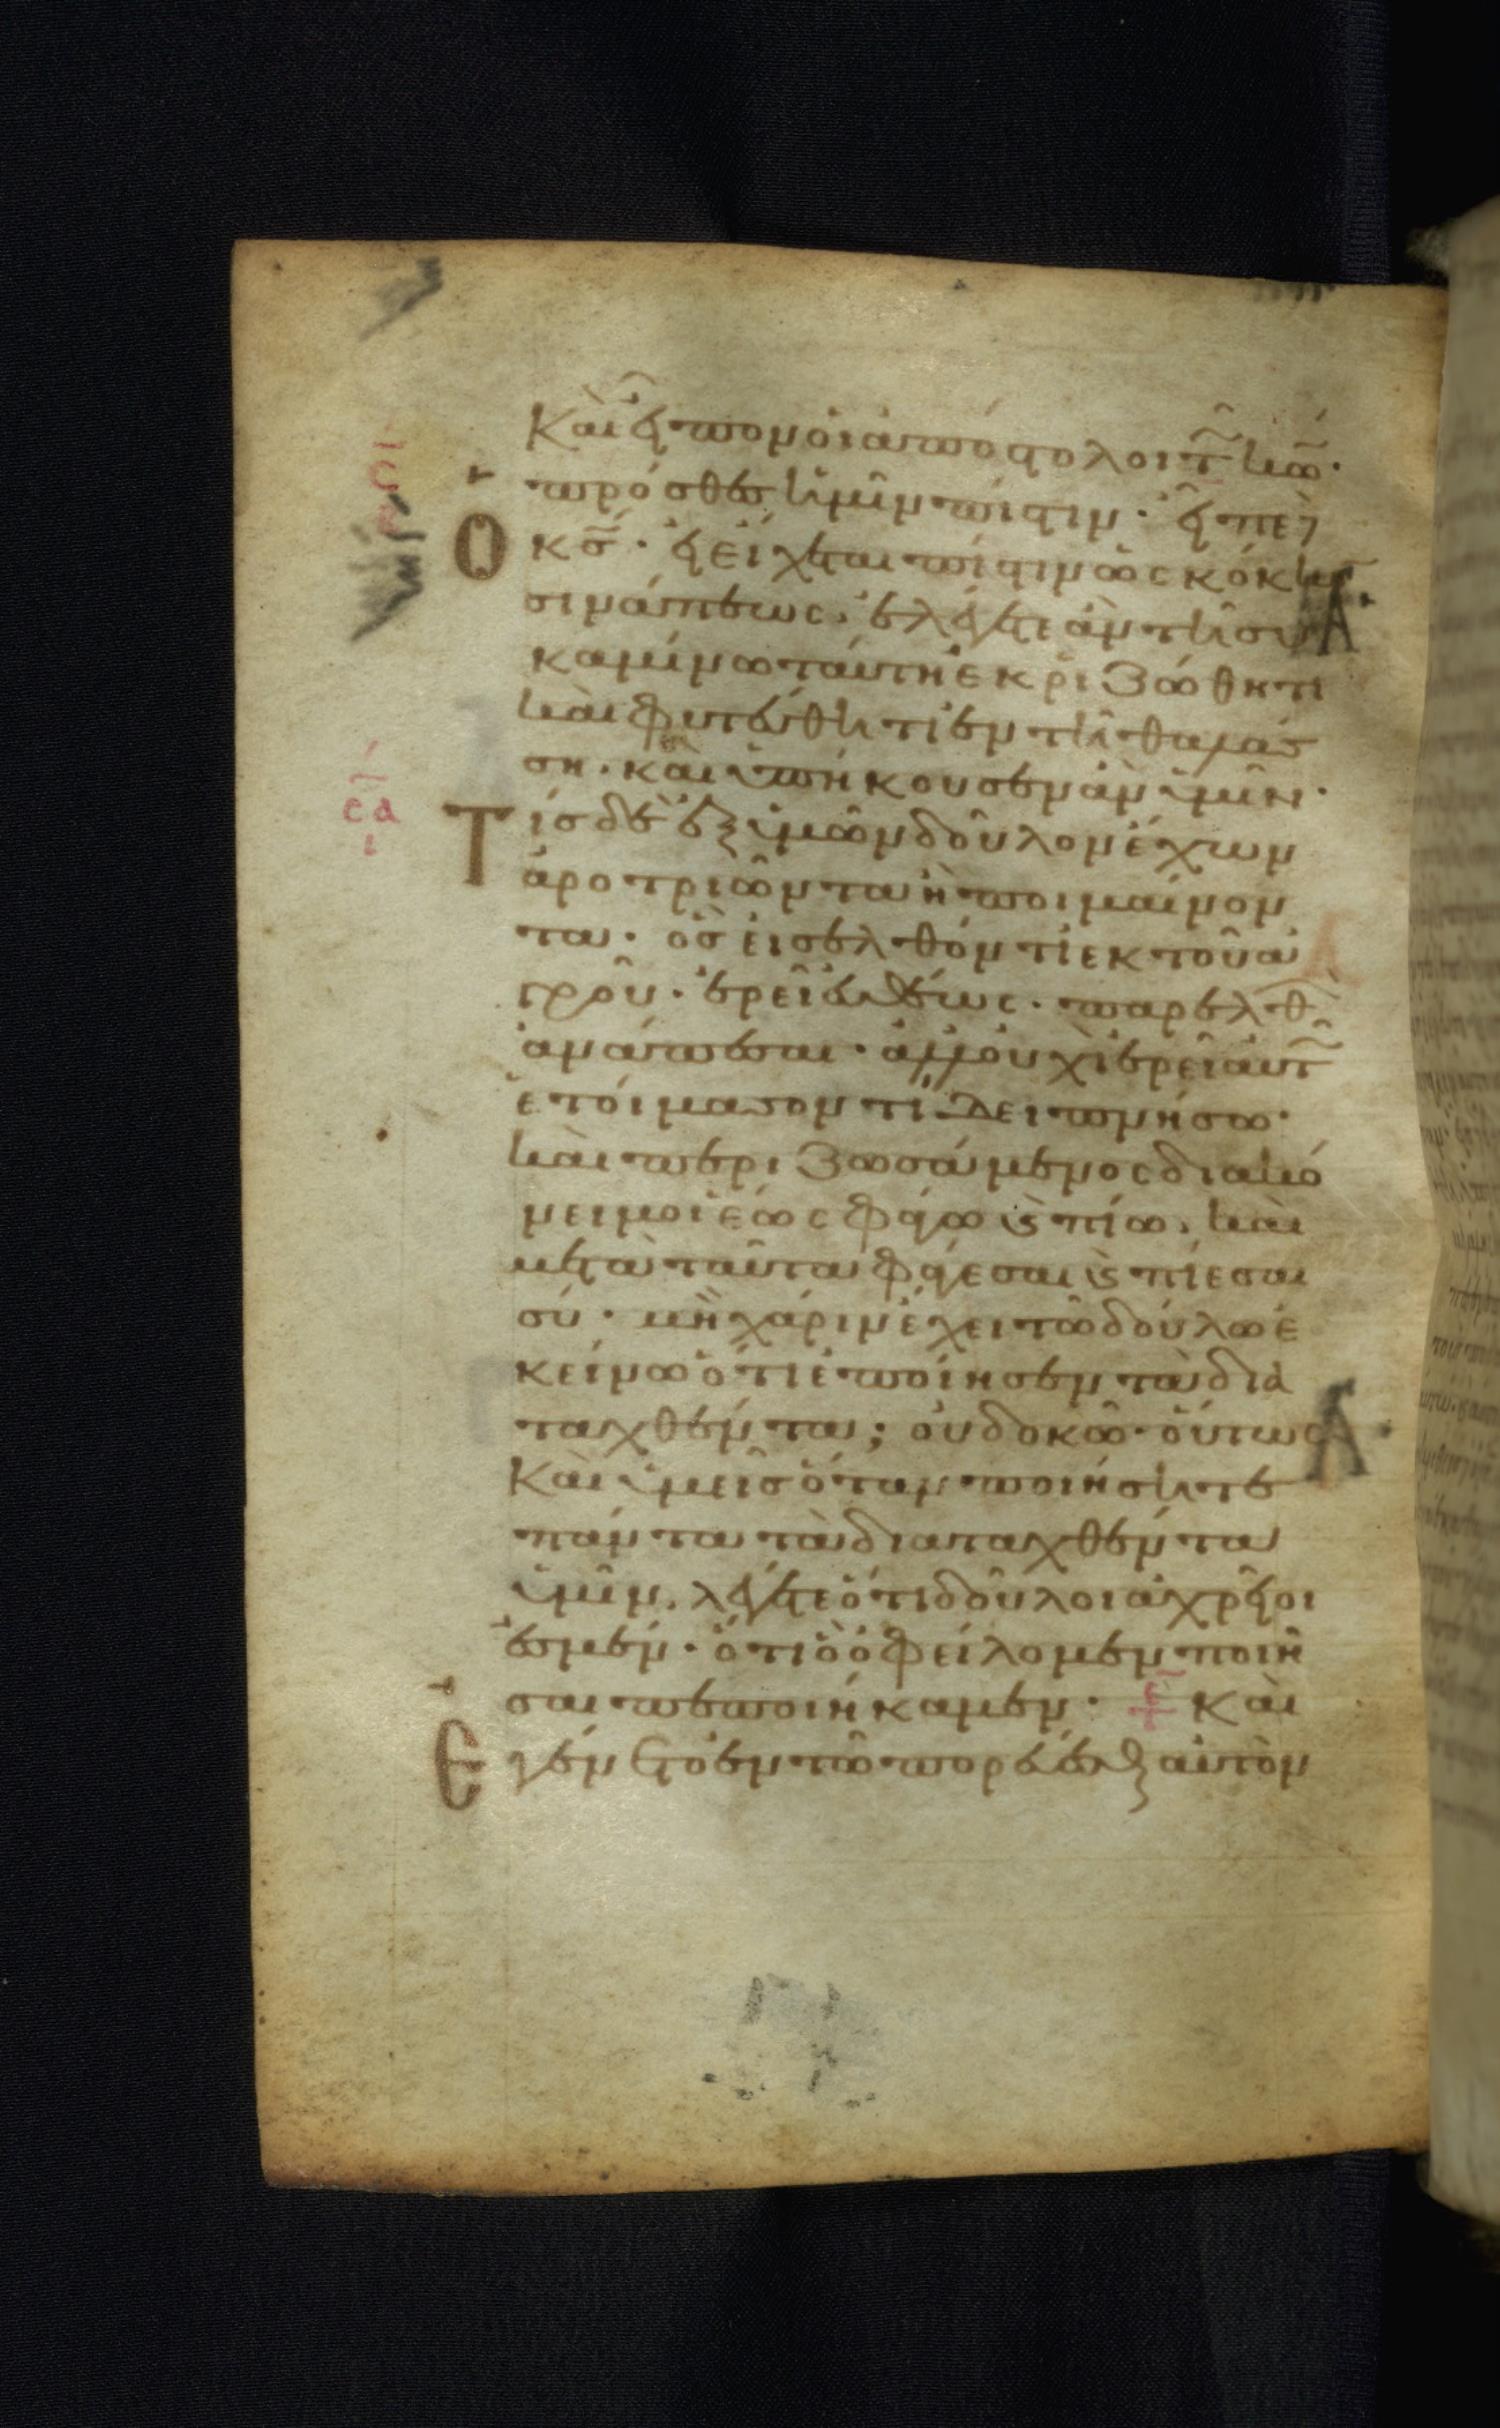 Καὶ εἶπον οἱ ἀπόστολοι τῶ κω.
πρόσθες ἡμῖν πίστιν. εἶπε δὲ
Ο κσ. εἰ εἴχεται πίστιν ὡς κόκκον
σινάπεως. ἐλέγετε ἂν τῆ συ
καμίνω ταύτη ἐκριζώθητι
καὶ φυτεύθητι ἐν τῆ θαλάσ
ση. καὶ ὑπήκουσεν ἂν ὑμῖν.
Τίσ δὲ ἐξ ὑμῶν δοῦλον ἔχων
ἀροτριῶντα ἢ ποιμαίνον
τα. ὃσ εἰσελθόντι ἐκ τοῦ ἀ
γροῦ. ἐρεῖ εὐθέως. παρελθ
ἀνάπεσαι. ἀλλ οὐχὶ ἐρεῖ αὐτ
ἑτοίμασον τί δειπνήσω.
καὶ περιζωσάμενος διακό
νει μοι ἕως φάγω κ πίω. καὶ
μετὰ ταῦτα φάγεσαι κ πίεσαι
σύ. μὴ χάριν ἔχει τῶ δούλω ἐ
κείνω ὅτι ἐποίησεν τὰ δια
ταχθέντα; οὐ δοκῶ. οὕτως
Καὶ ὑμεῖσ ὅταν ποιήσητε
πάντα τὰ διαταχθέντα
ὑμῖν. λέγετε ὅτι δοῦλοι ἀχρεῖοι
ἐσμέν. ὅτι ὃ ὀφείλομεν ποιῆ
σαι πεποιήκαμεν. Καὶ
Εγένετο ἐν τῶ πορεύεσθαι αὐτὸν